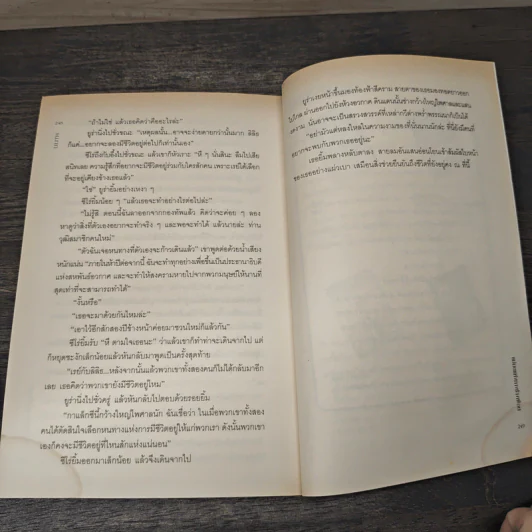 "ถ้าไม่ใช่ แล้วเธอคิดว่าคืออะไรล่ะ"
ยูร่านิ่งไปชั่วขณะ "เหตุผลนั้น...อาจจะง่ายดายกว่านั้นมาก ลิลิธ
ก็แค่...อยากจะลองมีชีวิตอยู่ต่อไปก็เท่านั้นเอง"
ซีไร่ยิ้มรับ "หึ ตามใจเธอนะ" ว่าแล้วเขาก็ทำท่าจะเดินจากไป แต่
ก็หยุดชะงักเล็กน้อยแล้วหันกลับมาพูดเป็นครั้งสุดท้าย
"ใช่" ยูร่ายิ้มอย่างเหงา ๆ
ซีไร่ยิ้มน้อย ๆ "แล้วเธอจะทำอย่างไรต่อไปล่ะ"
"ไม่รู้สิ ตอนนี้ฉันลาออกจากกองทัพแล้ว คิดว่าจะค่อย ๆ ลอง
หาดูว่าสิ่งที่ตัวเองอยากจะทำจริง ๆ และพอจะทำได้ แล้วนายล่ะ ท่าน
วุฒิสมาชิกคนใหม่"
"ตัวฉันเจอหนทางที่ตัวเองจะก้าวเดินแล้ว" เขาพูดต่อด้วยน้ำเสียง
หนักแน่น "ภายในห้าปีต่อจากนี้ ฉันจะทำทุกอย่างเพื่อขึ้นเป็นประธานาธิบดี
แห่งสหพันธ์อวกาศ และจะทำให้สงครามหายไปจากพวกมนุษย์ให้นานที่
สุดเท่าที่จะสามารถทำได้"
"งั้นหรือ"
"เธอจะมาด้วยกันไหมล่ะ"
"เอาไว้อีกสักสองปีข้างหน้าค่อยมาชวนใหม่ก็แล้วกัน"
"เรย์กับลิลิธ...หลังจากนั้นแล้วพวกเขาทั้งสองคนก็ไม่ได้กลับมาอีก
เลย เธอคิดว่าพวกเขายังมีชีวิตอยู่ไหม"
ยูร่านิ่งไปชั่วครู่ แล้วหันกลับไปตอบด้วยรอยยิ้ม
"กาแล็กซีนี้กว้างใหญ่ไพศาลนัก ฉันเชื่อว่า ในเมื่อพวกเขาทั้งสอง
คนได้ตัดสินใจเลือกหนทางแห่งการมีชีวิตอยู่ให้แก่พวกเรา ดังนั้นพวกเขา
เองก็คงจะมีชีวิตอยู่ที่ไหนสักแห่งแน่นอน"
ซีไร่ยิ้มออกมาเล็กน้อย แล้วจึงเดินจากไป
ยูร่าเงยหน้าขึ้นมองท้องฟ้าสีคราม สายตาของเธอมองทอดยาวออก
"อย่ามัวแต่หลงใหลในความงามของที่นั่นนานนักล่ะ ที่นี่ยังมีคนที่
อยากจะพบกับพวกเธออยู่นะ"
เธอยิ้มพลางหลับตาลง สายลมอันแสนอ่อนโยนเข้าสัมผัสใบหน้า
ของเธออย่างแผ่วเบา เสมือนสิ่งช่วยยืนยันถึงชีวิตที่ยังอยู่คง ณ ที่นี้